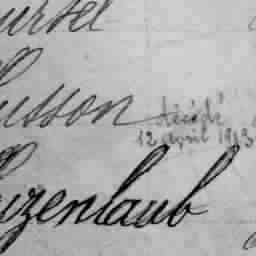 urtel
Husson décédé
12 avril 1913
uzenlaub